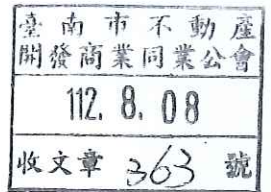 臺南市不動產
開發商業同業公會
112. 8. 08
收文章 363 號